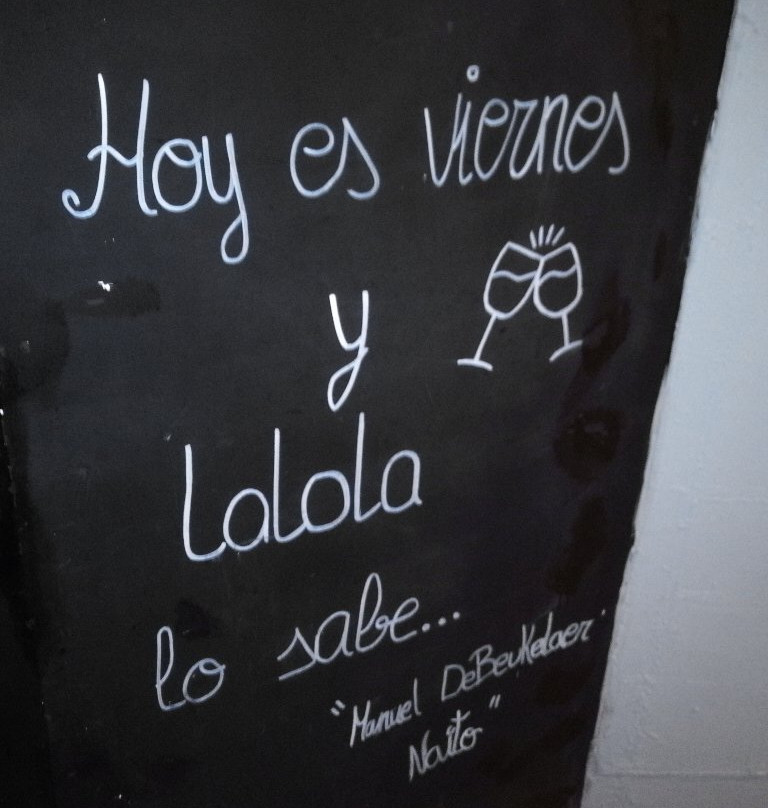 Hoy es viernes
y
Lalola
lo sabe...
"Manuel DeBeukelaer
Naito"